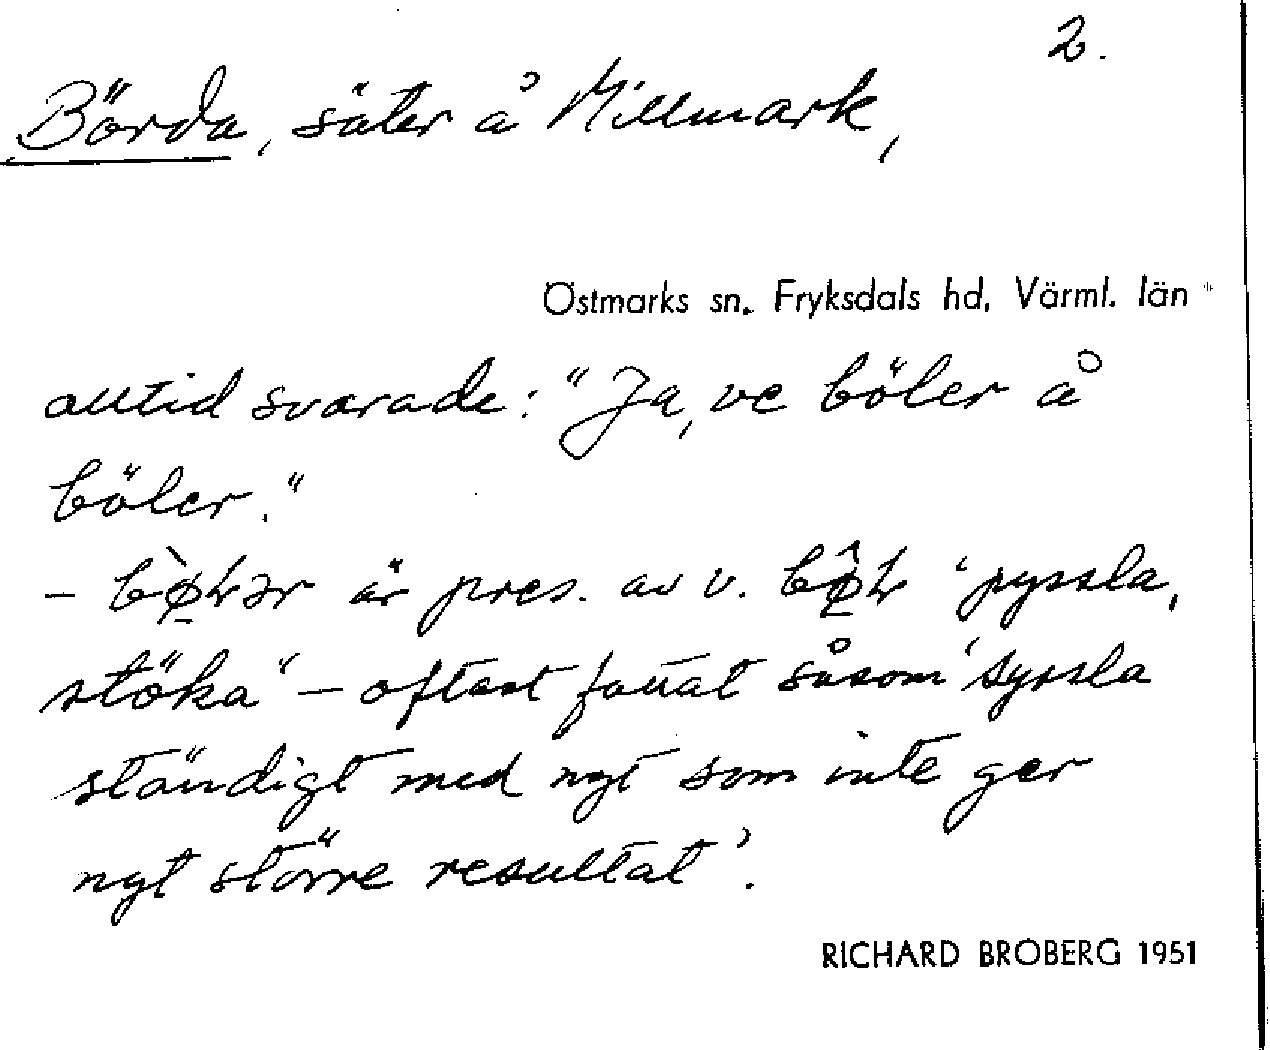 2.
Börda, säter å Millmark,
Östmarks sn. Fryksdals hd, Värml. län
alltid svarade: "Ja, ve böler å
böler."
- bø̀ɫər är pres. av v. bø̂ɫ 'pyssla,
stöka' - oftast fattat såsom 'syssla
ständigt med ngt som inte ger
ngt större resultat'.
RICHARD BROBERG 1951